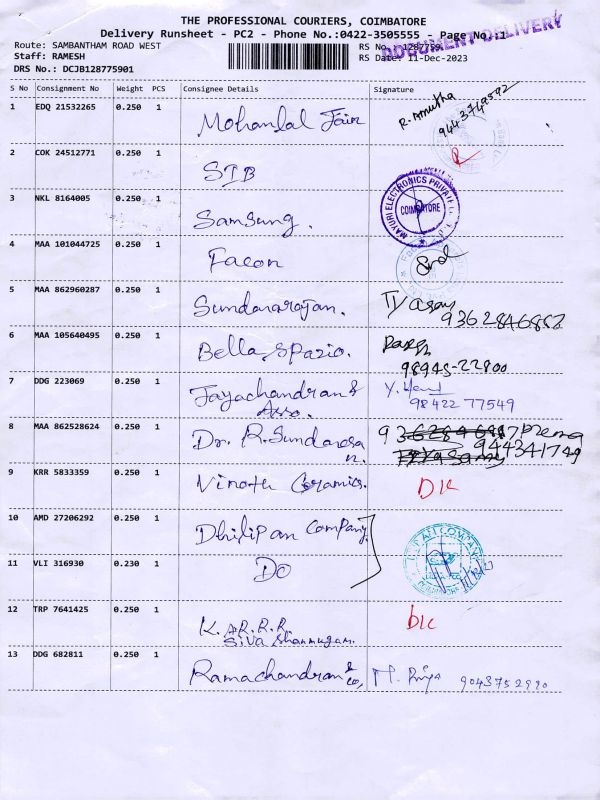 THE PROFESSIONAL COURIERS, COIMBATORE
Delivery Runsheet - PC2 - Phone No.:0422-3505555 - Page No.:1
Route: SAMBANTHAM ROAD WEST RS No.: 1287759
DOCUMENT DELIVERY
Staff: RAMESH RS Date: 11-Dec-2023
DRS No.: DCJB128775901
S No Consignment No Weight PCS Consignee Details Signature
1 EDQ 21532265 0.250 1 Mohanlal Jain R. Amutha 9443749592
2 COK 24512771 0.250 1 SIB
3 NKL 8164005 0.250 1 Samsung. MAYURI ELECTRONICS PRIVATE COIMBATORE
4 MAA 101044725 0.250 1 Facon
5 MAA 862960287 0.250 1 Sundararajan.
9362846868
6 MAA 105640495 0.250 1 Bella Spazio.
98945-22800
7 DDG 223069 0.250 1 Jayachandran &
Asso. 98422 77549
8 MAA 862528624 0.250 1 Dr. R. Sundarara Prema
n. 944341749
9 KRR 5833359 0.250 1 Vinoth Ceramics. D/c
10 AMD 27206292 0.250 1 Dhilipan Company
11 VLI 316930 0.230 1 Do
12 TRP 7641425 0.250 1 K. A.R.R.R. D/c
Siva Shanmugam.
13 DDG 682811 0.250 1 Ramachandran & co, M. Priya 9043752990